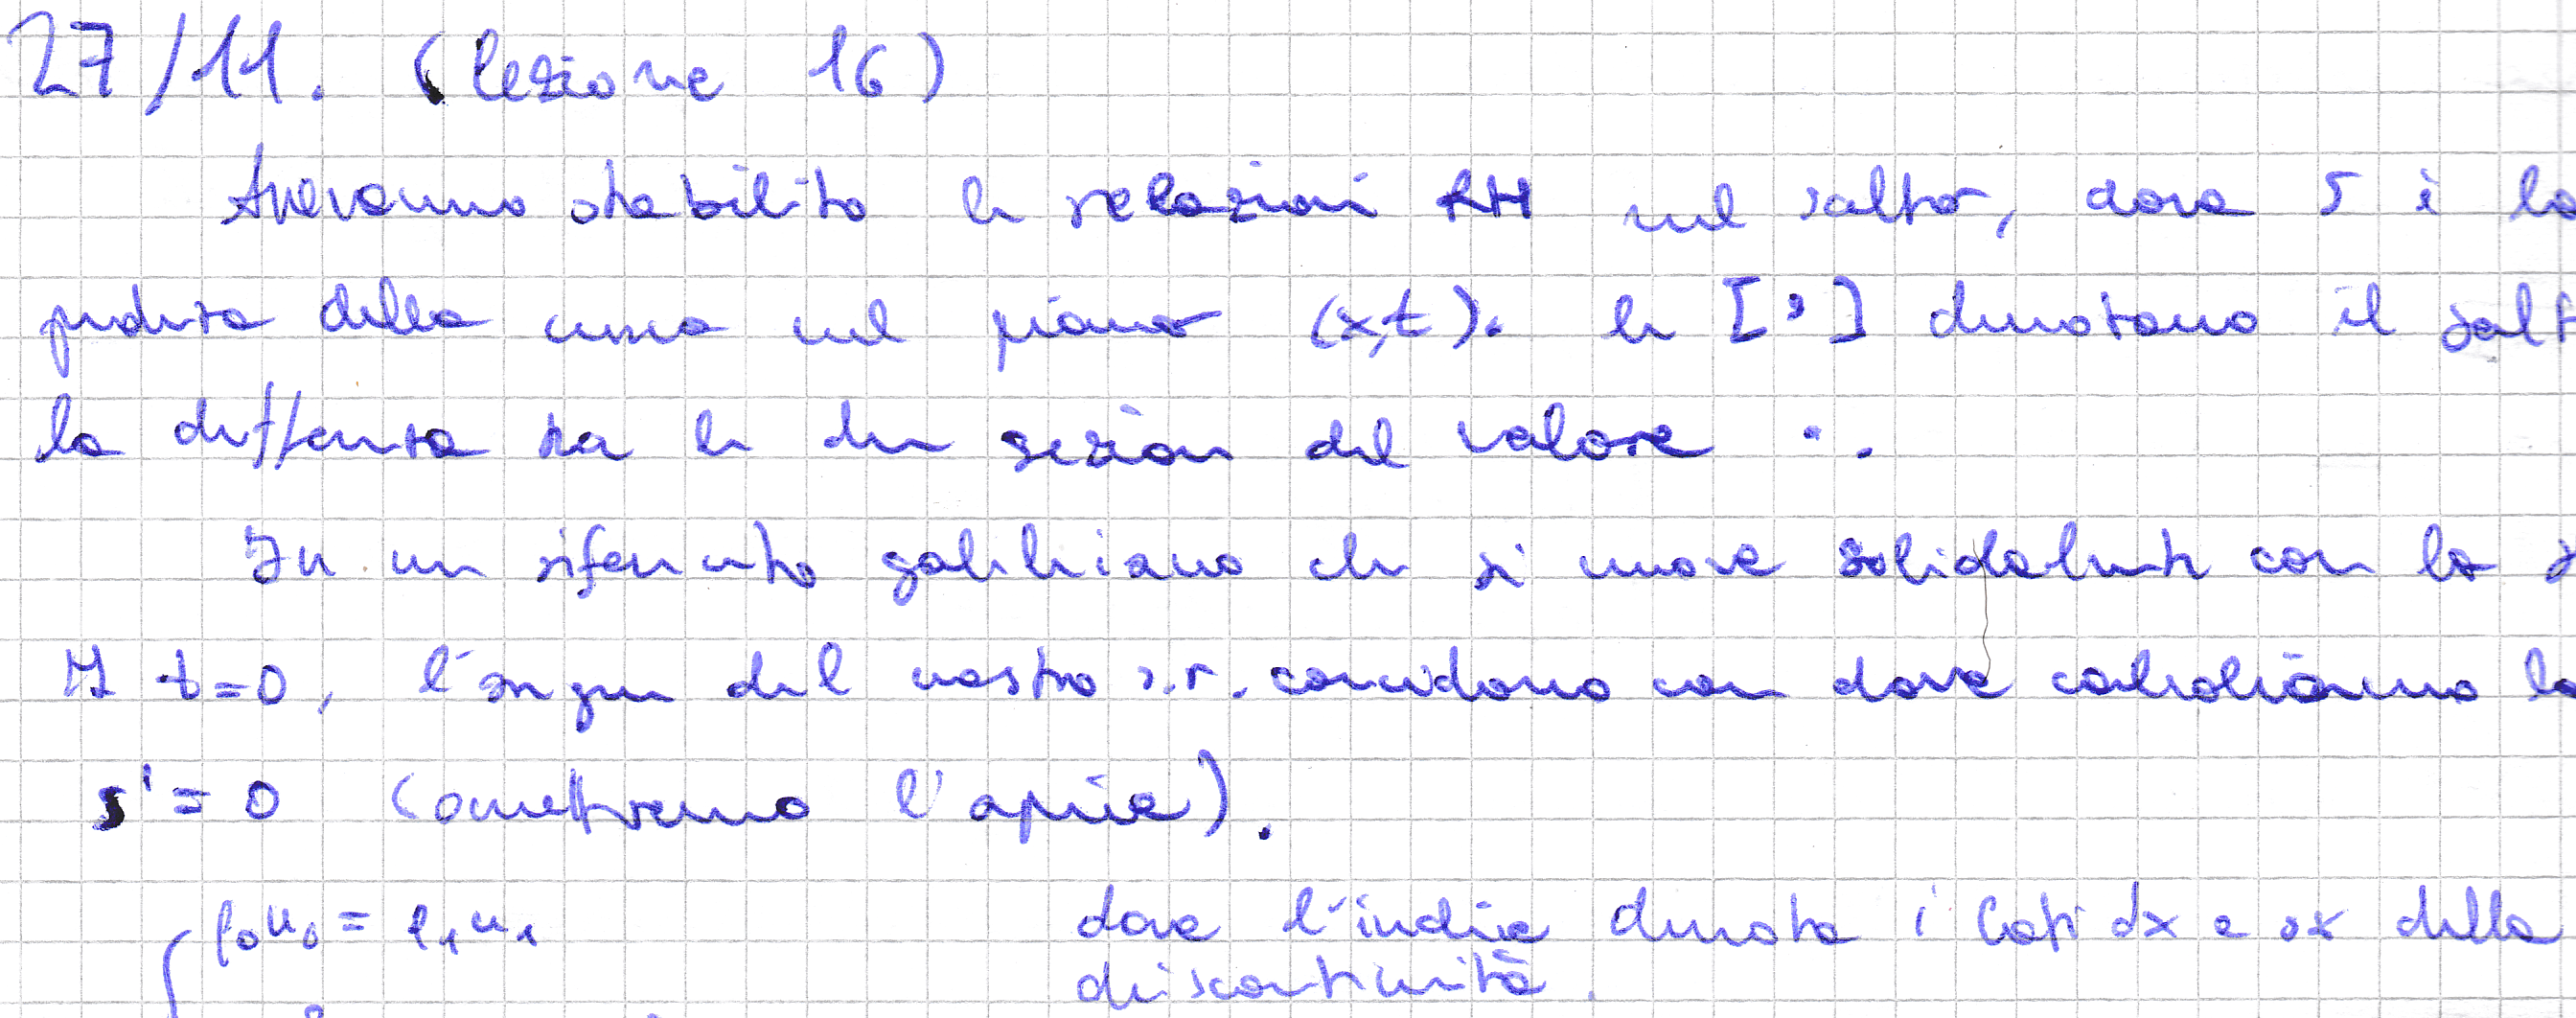 27/11. (lezione 16)
Avevamo stabilito le relazioni RH sul salto, dove s è la
pendenza della curva nel piano (x,t). Le [·] denotano il salt
la differenza tra le due sezioni del valore ·.
In un riferimento galileiano che si muove solidalmente con la
A t=0, l'origine del nostro s.r. coincidono con dove calcoliamo la
s'=0 (ometteremo l'apice).
ρ₀u₀ = ρ₁u₁ dove l'indice denota i lati dx e sx della
discontinuità.